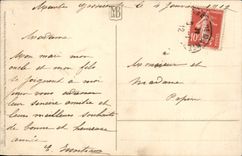 le 4 Janvier 1912
Madame
Mon mari mon
oncle et mon fils
se joignent à moi
pour vous adresser
leur sincère amitié et
leurs meilleurs souhaits
de bonne et heureuse
année
Monsieur et
Madame
Papin